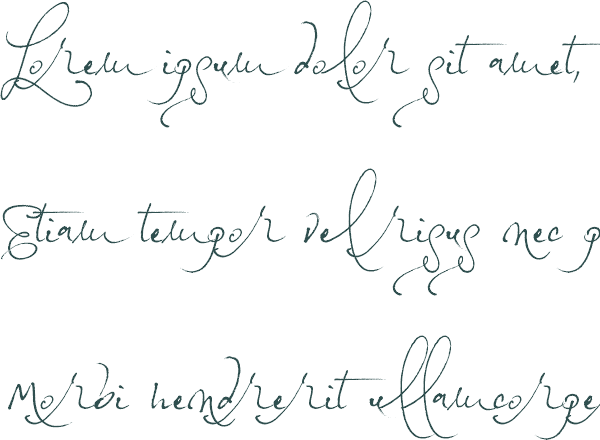 Lorem ipsum dolor sit amet,
Etiam tempor vel risus nec p
Morbi hendrerit ullamcorpe